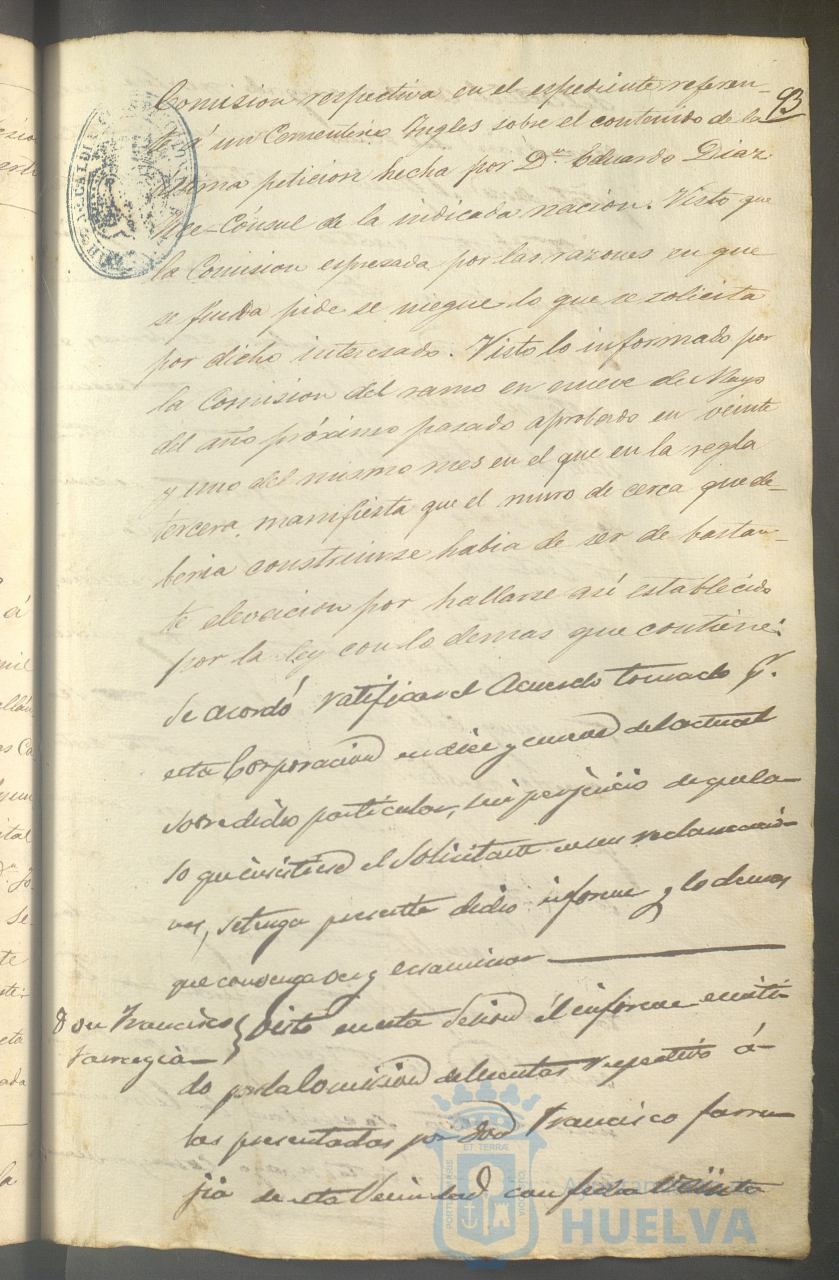 93
Comision respectiva en el espediente referen-
te á un Cementerio Ingles sobre el contenido de la
ultima peticion hecha por Dn. Eduardo Diaz
Vice-Cónsul de la indicada nacion. Visto que
la Comision espresada por las razones en que
se funda pide se niegue lo que se solicita
por dicho interesado. Visto lo informado por
la Comision del ramo en nueve de Mayo
del año próximo pasado aprobado en veinte
y uno del mismo mes en el que en la regla
tercera, manifiesta que el muro de cerca que de-
beria construirse habia de ser de bastan-
te elevacion por hallarse así establecido
por la ley con lo demas que contiene:
Se acordó ratificar el Acuerdo tomado pr.
esta Corporacion en diez y nueve del actual
sobre dicho particular, sin perjuicio de que ca-
so que insistiese el Solicitante en sus reclamacio-
nes, se tenga presente dicho informe y lo demas
que convenga oir y ecsaminar
Don Francisco
Farregia
Visto en esta Sesion el informe emiti-
do por la Comision de Cuentas respectivo á
las presentadas por Don Francisco Farre-
jia de esta Vecindad con fecha veinte
ALCALDIA
PORTUS MARIS
ET TERRAE
CUSTODIA
HUELVA